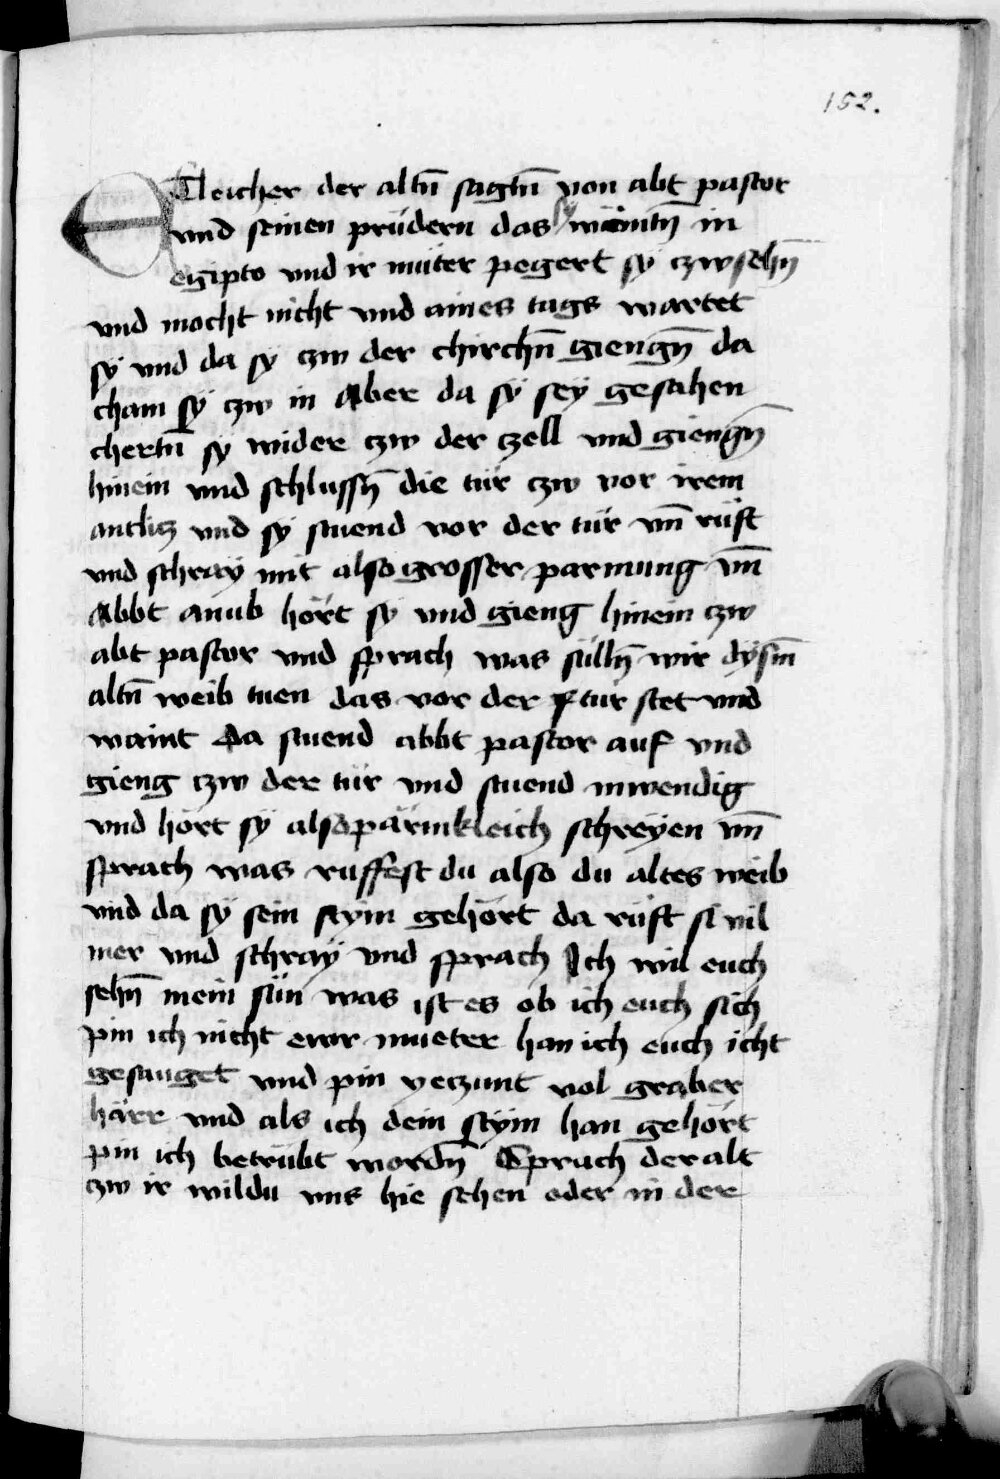 152.
Etleicher der altn̄ sagtn̄ von abt pastor
vnd seinen prüdern das sy wäintn̄ in
egipto vnd ir müter pegert sy czwsehn̄
vnd mocht nicht vnd aines tags wartet
sy vnd da sy czw der chirchn̄ giengn̄ da
cham sy czw in Aber da sy sey gesahen
chertn̄ sy wider czw der czell vnd giengn̄
hinein vnd schlussn̄ die tür czw vor irem
antlicz vnd sy stuend vor der tür vn̄ rüft
vnd schray mit also grosser parmung vn̄
Abbt anub hört sy vnd gieng hinein czw
abt pastor vnd sprach was sülln̄ wir dysm̄
altn̄ weib tuen das vor der tür stet vnd
waint Da stuend abbt pastor auf vnd
gieng czw der tür vnd stuend inwendig
vnd hört sy also pärmkleich schreyen vn̄
sprach was ruffest du also du altes weib
vnd da sy sein stym gehört da rüft si vil
mer vnd schray vnd sprach Ich wil euch
sehn̄ mein sün was ist es ob ich euch sich
pin ich nicht ewr mueter han ich euch icht
gesauget vnd pin yeczunt vol graber
härr vnd als ich dein stym han gehört
pin ich betrübt wordn̄ Sprach der alt
czw ir wildu vns hie sehen oder in der